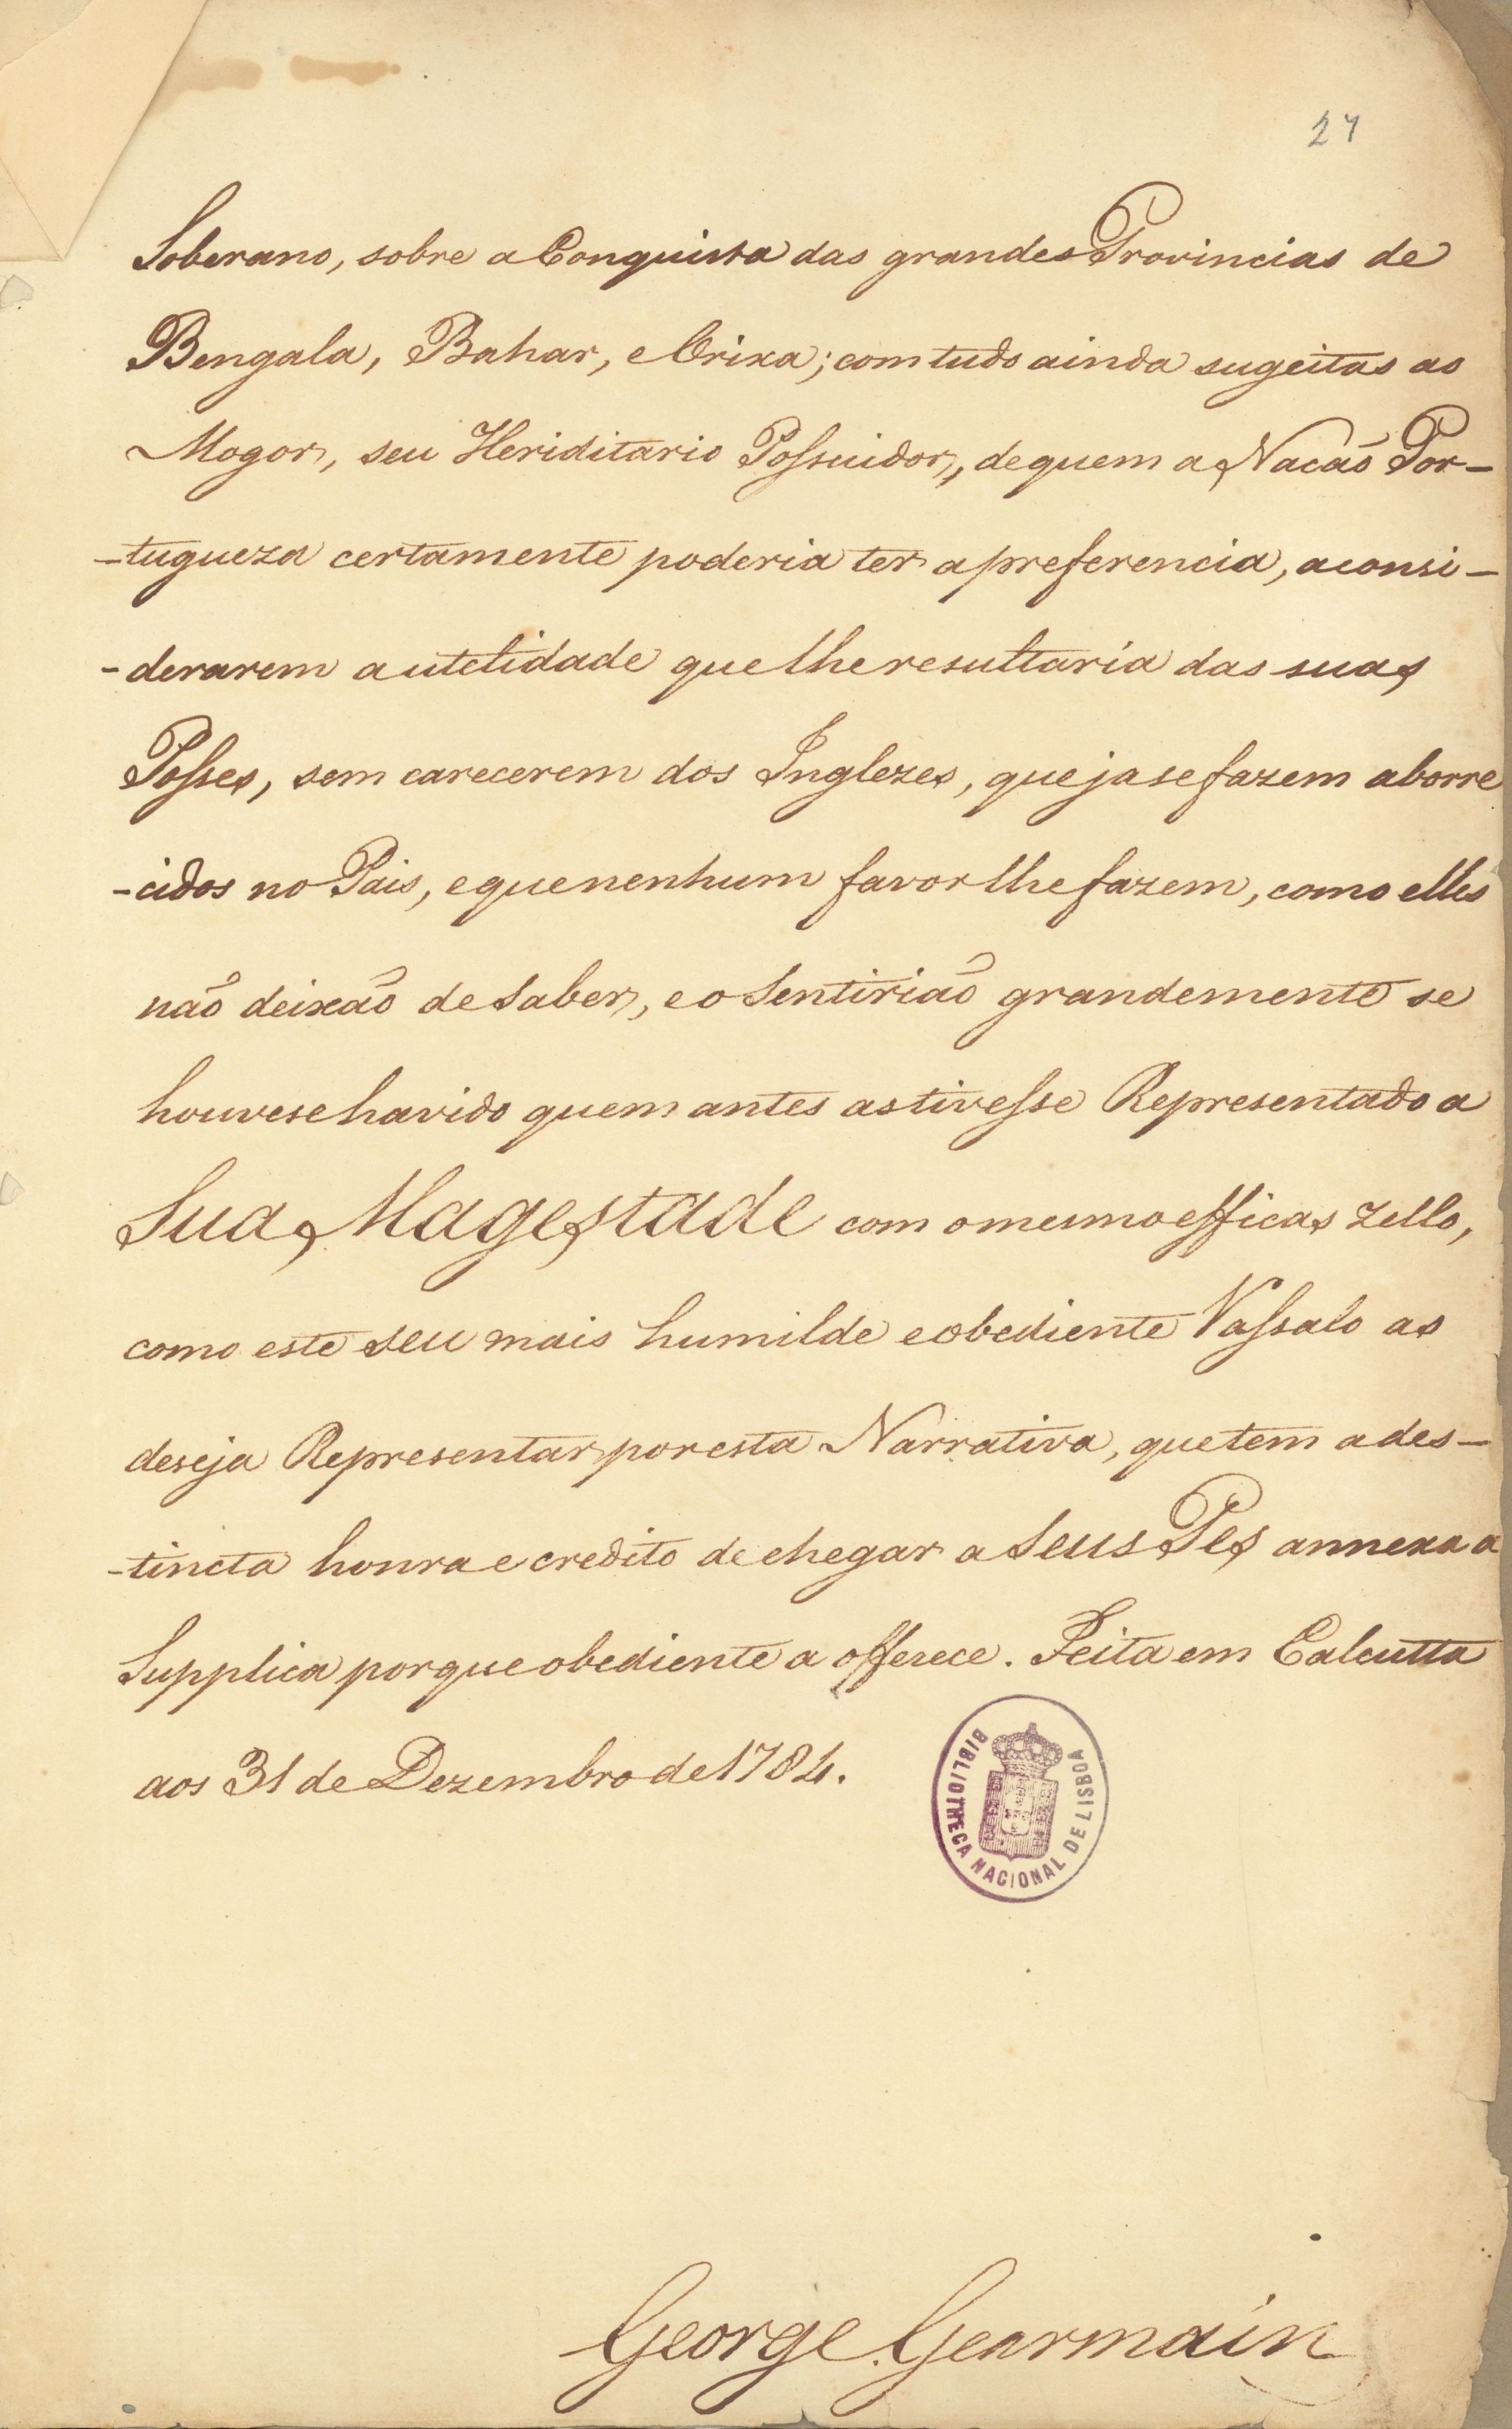 27
Soberano, sobre a Conquista das grandes Provincias de
Bengala, Bahar, e Orixa; com tudo ainda sugeitas ao
Mogor, seu Heriditario Possuidor, de quem a Nacaõ Por-
-tugueza certamente poderia ter a preferencia, a consi-
-derarem a utelidade que lhe resultaria das suas
Posses, sem carecerem dos Inglezes, que ja se fazem aborre
-cidos no Pais, e que nenhum favor lhe fazem, como elles
naõ deixaõ de saber, e o sentiriaõ grandemente se
houvese havido quem antes as tivesse Representado a
Sua Magestade com o mesmo efficas zello,
como este seu mais humilde e obediente Vassalo as
deseja Representar por esta Narrativa, que tem a des-
-tincta honra e credito de chegar a Seus Pes annexa a
Supplica porque obediente a offerece. Feita em Calcutta
aos 31 de Dezembro de 1784.
BIBLIOTHECA NACIONAL DE LISBOA
George Gearmain